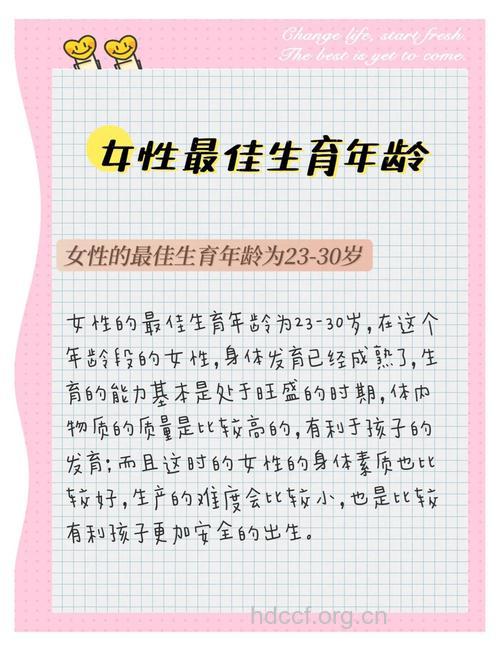 Change life, start fresh.
The best is yet to come.
女性最佳生育年龄
女性的最佳生育年龄为23-30岁
女性的最佳生育年龄为23-30岁,在这个
年龄段的女性,身体发育已经成熟了,生
育的能力基本是处于旺盛的时期,体内
物质的质量是比较高的,有利于孩子的
发育;而且这时的女性的身体素质也比
较好,生产的难度会比较小,也是比较
有利孩子更加安全的出生。
hdccf.org.cn